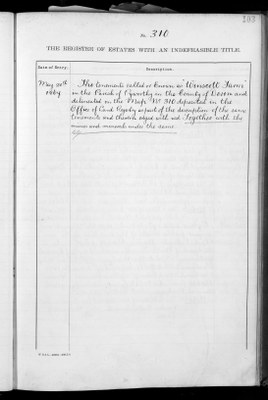 103
No. 310
THE REGISTER OF ESTATES WITH AN INDEFEASIBLE TITLE.
Date of Entry. Description.
May 30th The tenements called or known as "Winscott Farm"
1864 in the Parish of Pyworthy in the County of Devon and
delineated in the Map No 310 deposited in the
Office of Land Registry as part of the description of the same
tenements and therein edged with red Together with the
mines and minerals under the same